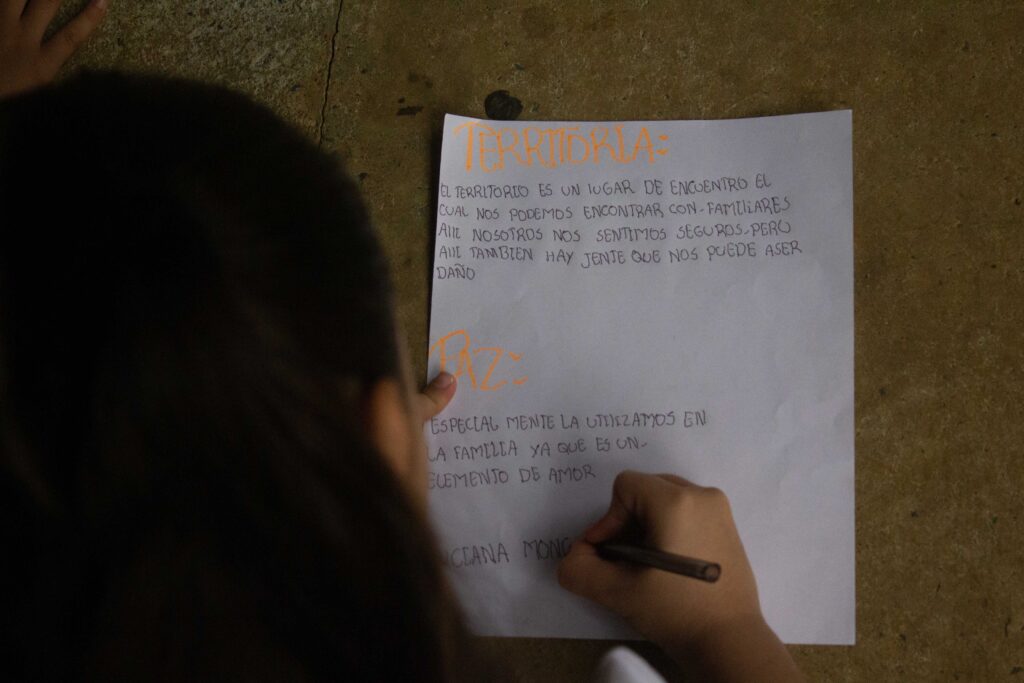 TERRITORIA:
EL TERRITORIO ES UN LUGAR DE ENCUENTRO EL
CUAL NOS PODEMOS ENCONTRAR CON-FAMILIARES
AllI NOSOTROS NOS SENTIMOS SEGUROS-PERO
AllI TAMBIEN HAY JENTE QUE NOS PUEDE ASER
DAÑO
PAZ:
ESPECIAL MENTE LA UTILIZAMOS EN
LA FAMILIA YA QUE ES UN-
ELEMENTO DE AMOR